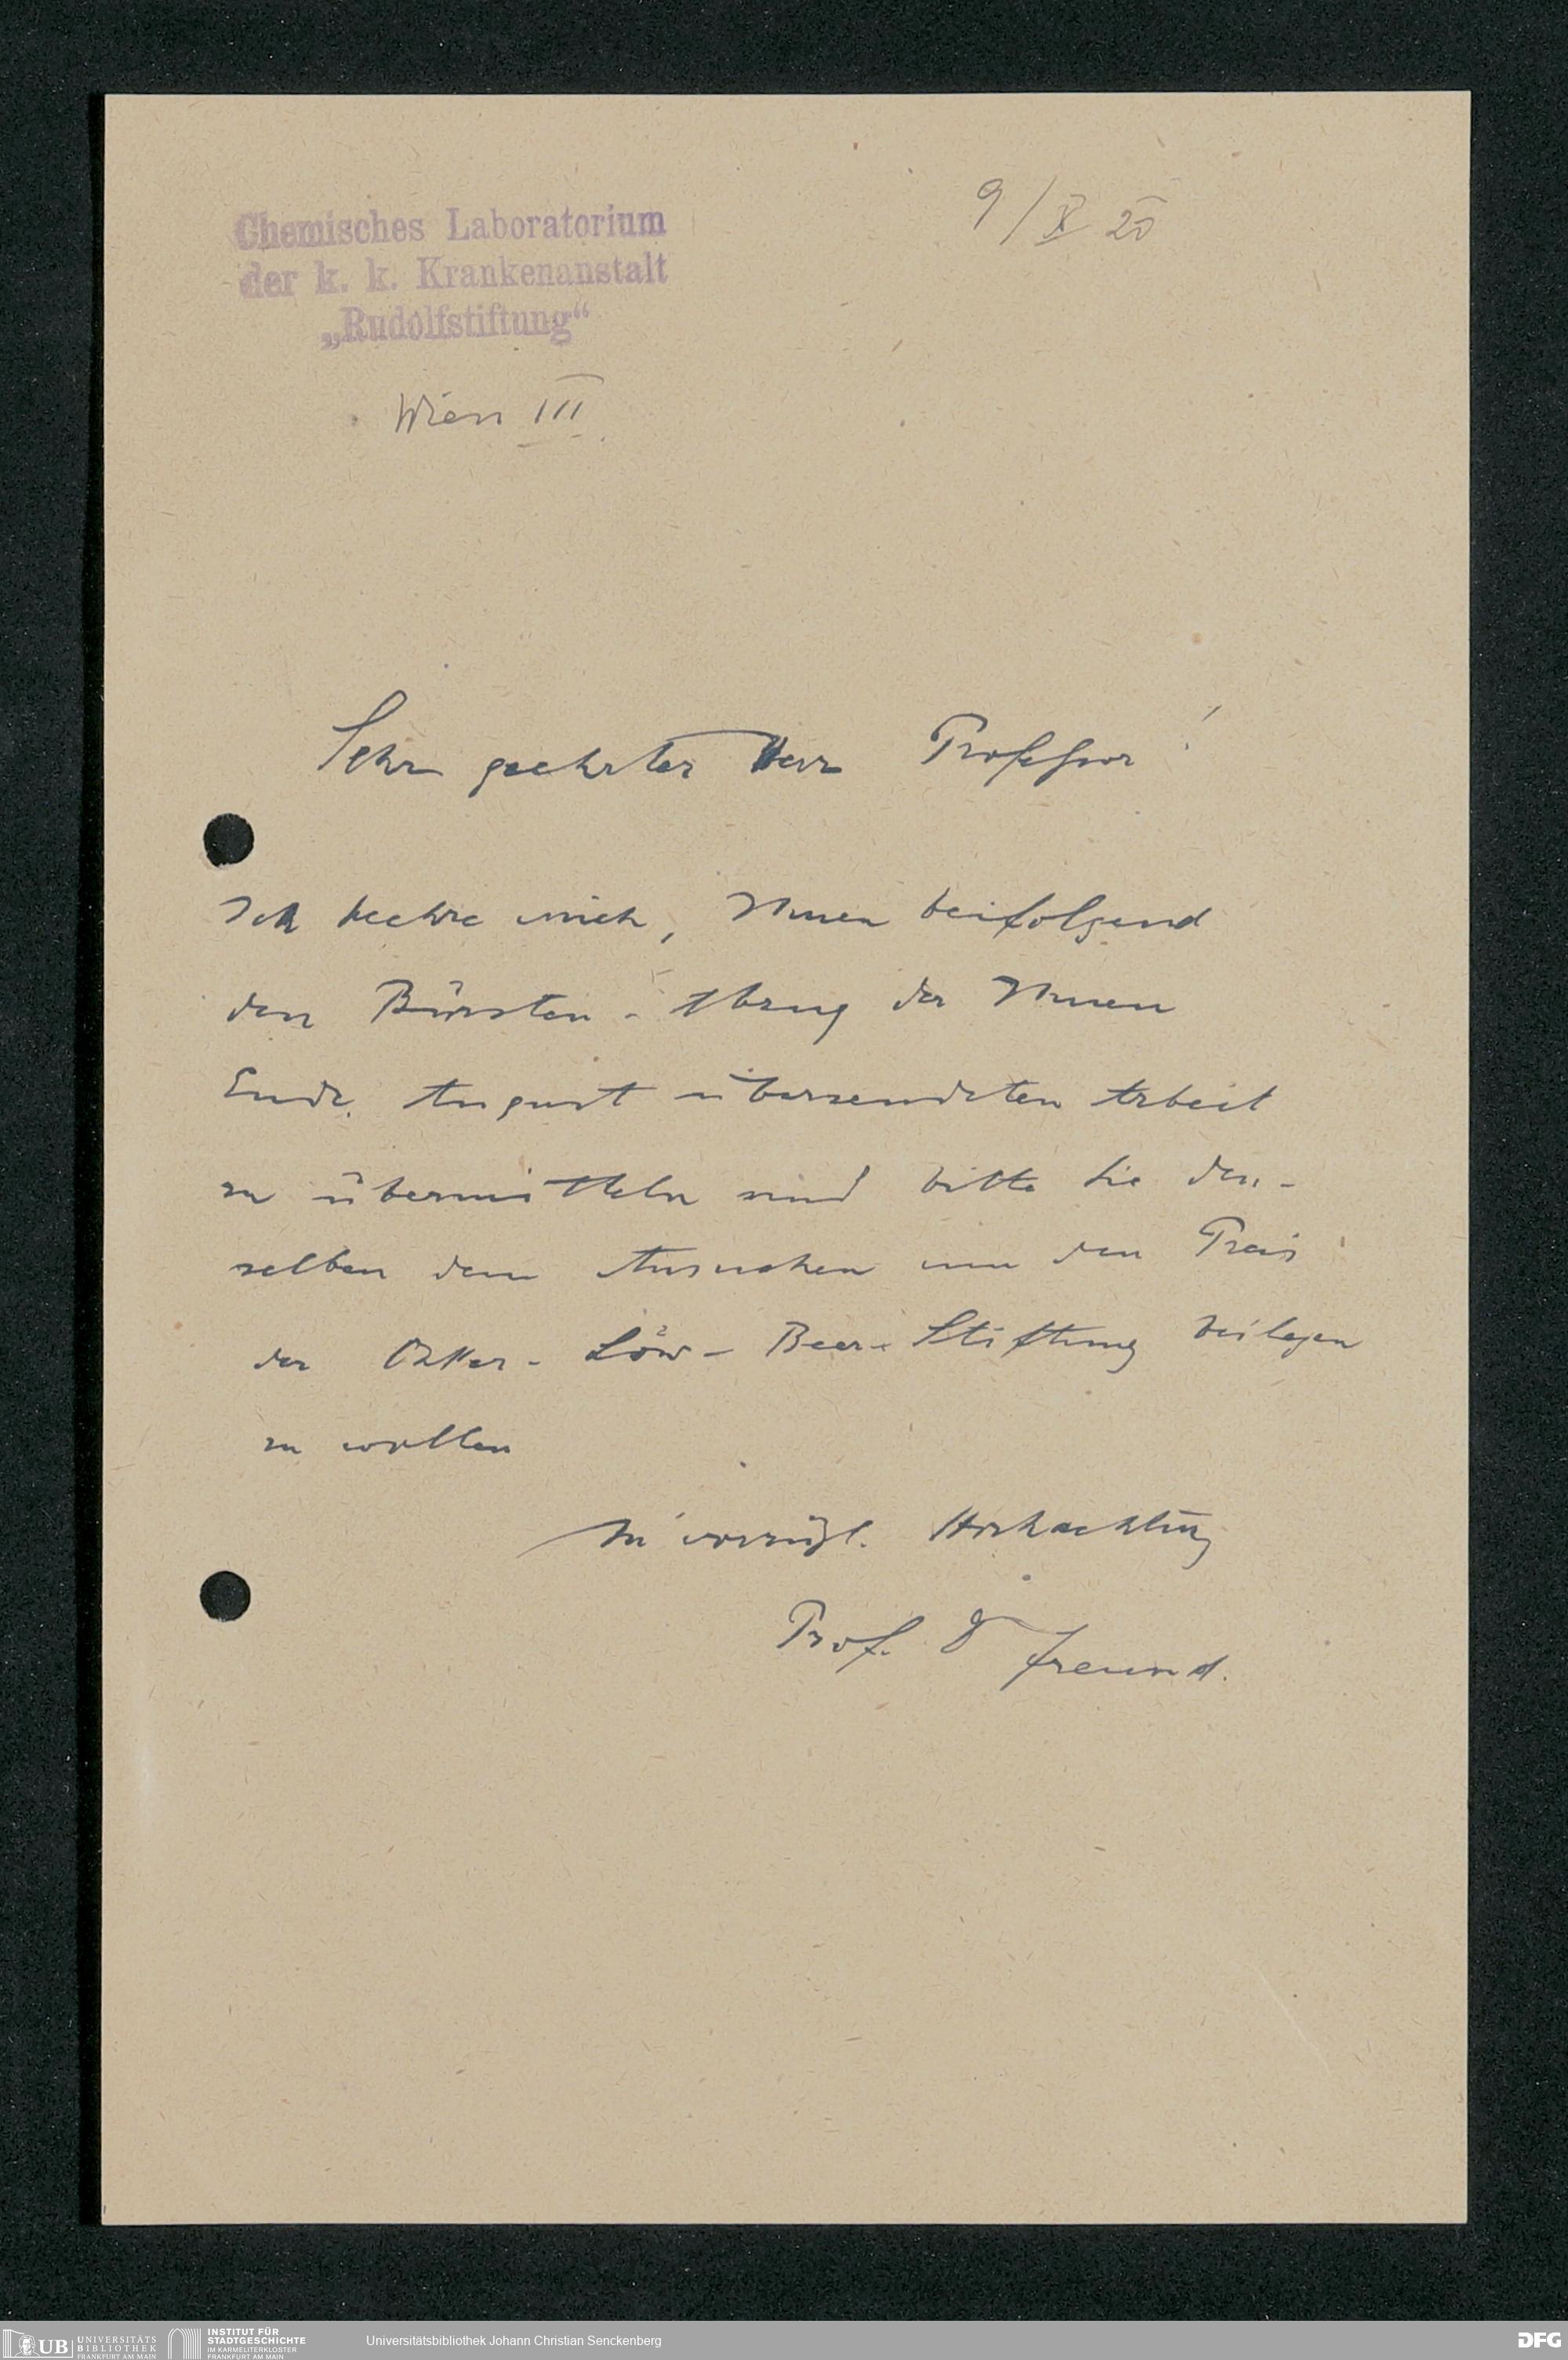 Chemisches Laboratorium
der k. k. Krankenanstalt
„Rudolfstiftung“
9/X 20
Wien III.
Sehr geehrter Herr Professor!
Ich beehre mich, Ihnen beifolgend
den Bürsten-Abzug der Ihnen
Ende August übersendeten Arbeit
zu übermitteln und bitte Sie den-
selben dem Ansuchen um den Preis
der Oskar-Löw-Beer-Stiftung beilegen
zu wollen
In vorzügl. Hochachtung
Prof. Dr Freund.
UB UNIVERSITÄTS
BIBLIOTHEK
FRANKFURT AM MAIN
INSTITUT FÜR
STADTGESCHICHTE
IM KARMELITERKLOSTER
FRANKFURT AM MAIN
Universitätsbibliothek Johann Christian Senckenberg
DFG